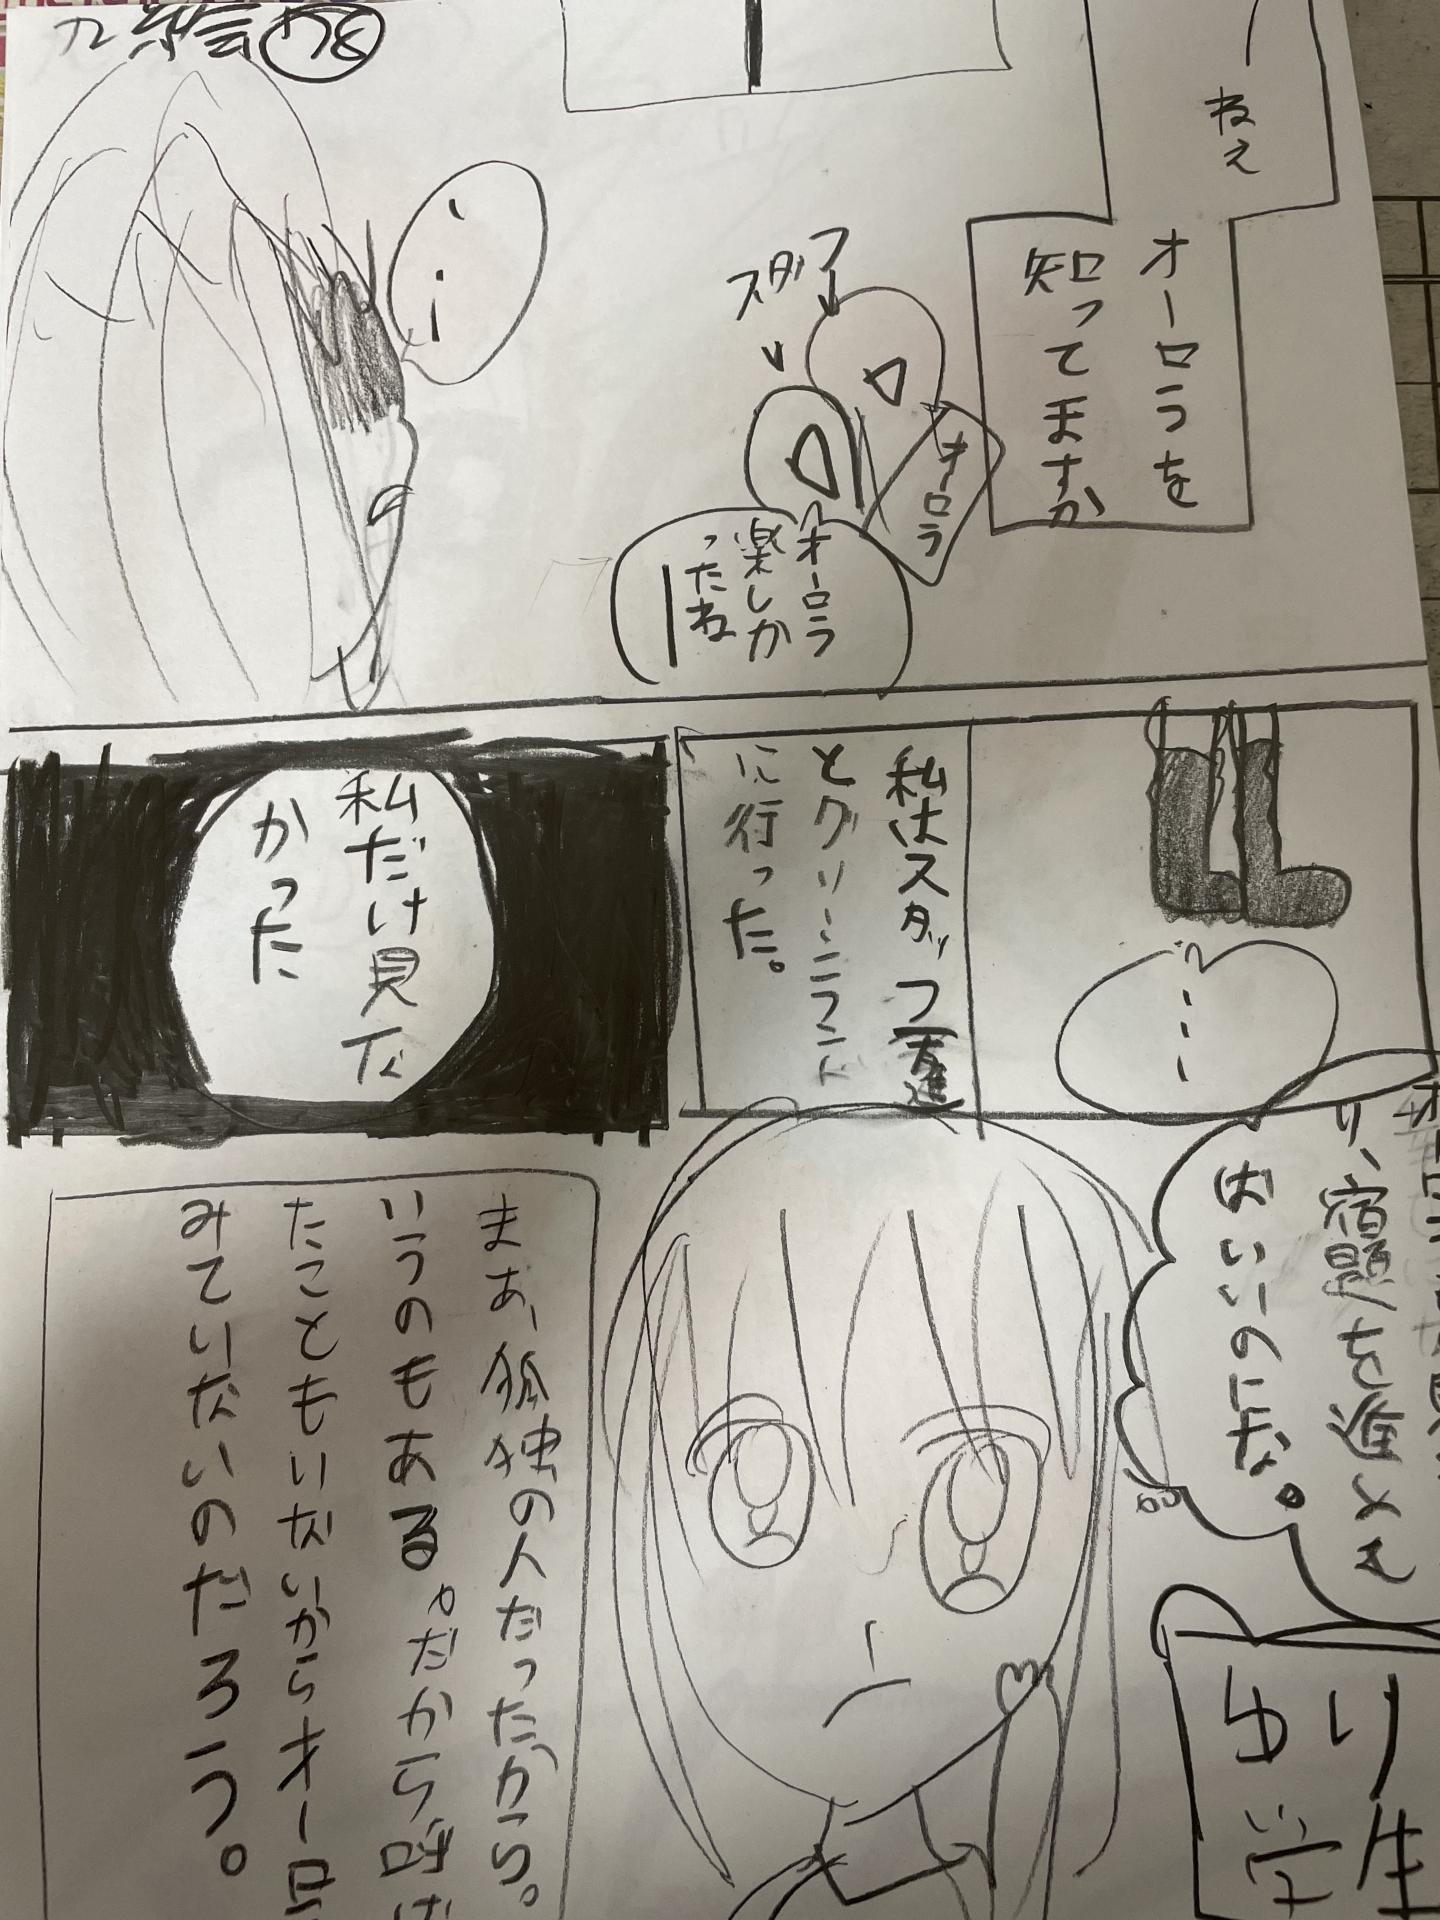 ねえ
オーロラを
知ってますか
スタッフ
オーロラ
オーロラ
楽しか
ったね
ー
私はスタッフ
とグリーンランド
に行った。
私だけ見な
かった
り、宿題を進めて
はいいのにな。
まあ、孤独の人だったから。
いうのもある。だから呼ば
たこともいないからオーロ
みていないのだろう。